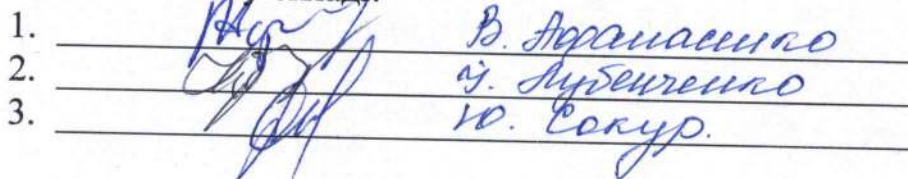 1. В. Афанасенко
2. І. Лубенченко
3. Ю. Сокур.